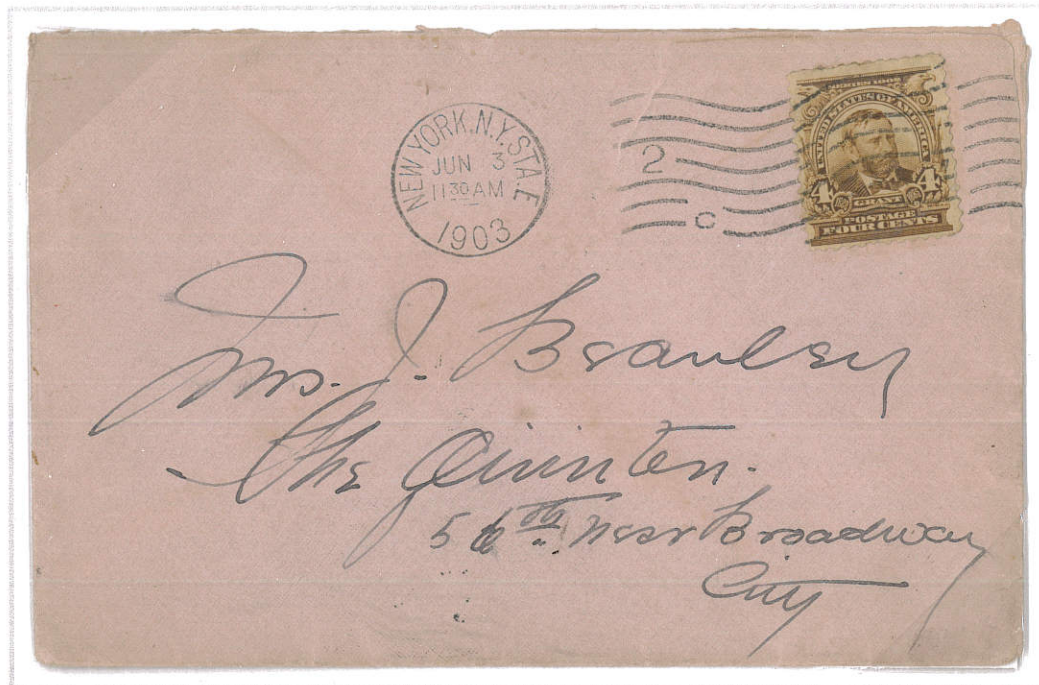 NEW YORK, N.Y. STA. E
JUN 3
11 30 AM
1903
2
C
SERIES 1902
UNITED STATES OF AMERICA
4 4
GRANT
POSTAGE
FOUR CENTS
Mrs. J. Beauley
The Quinten.
56th near Broadway
City